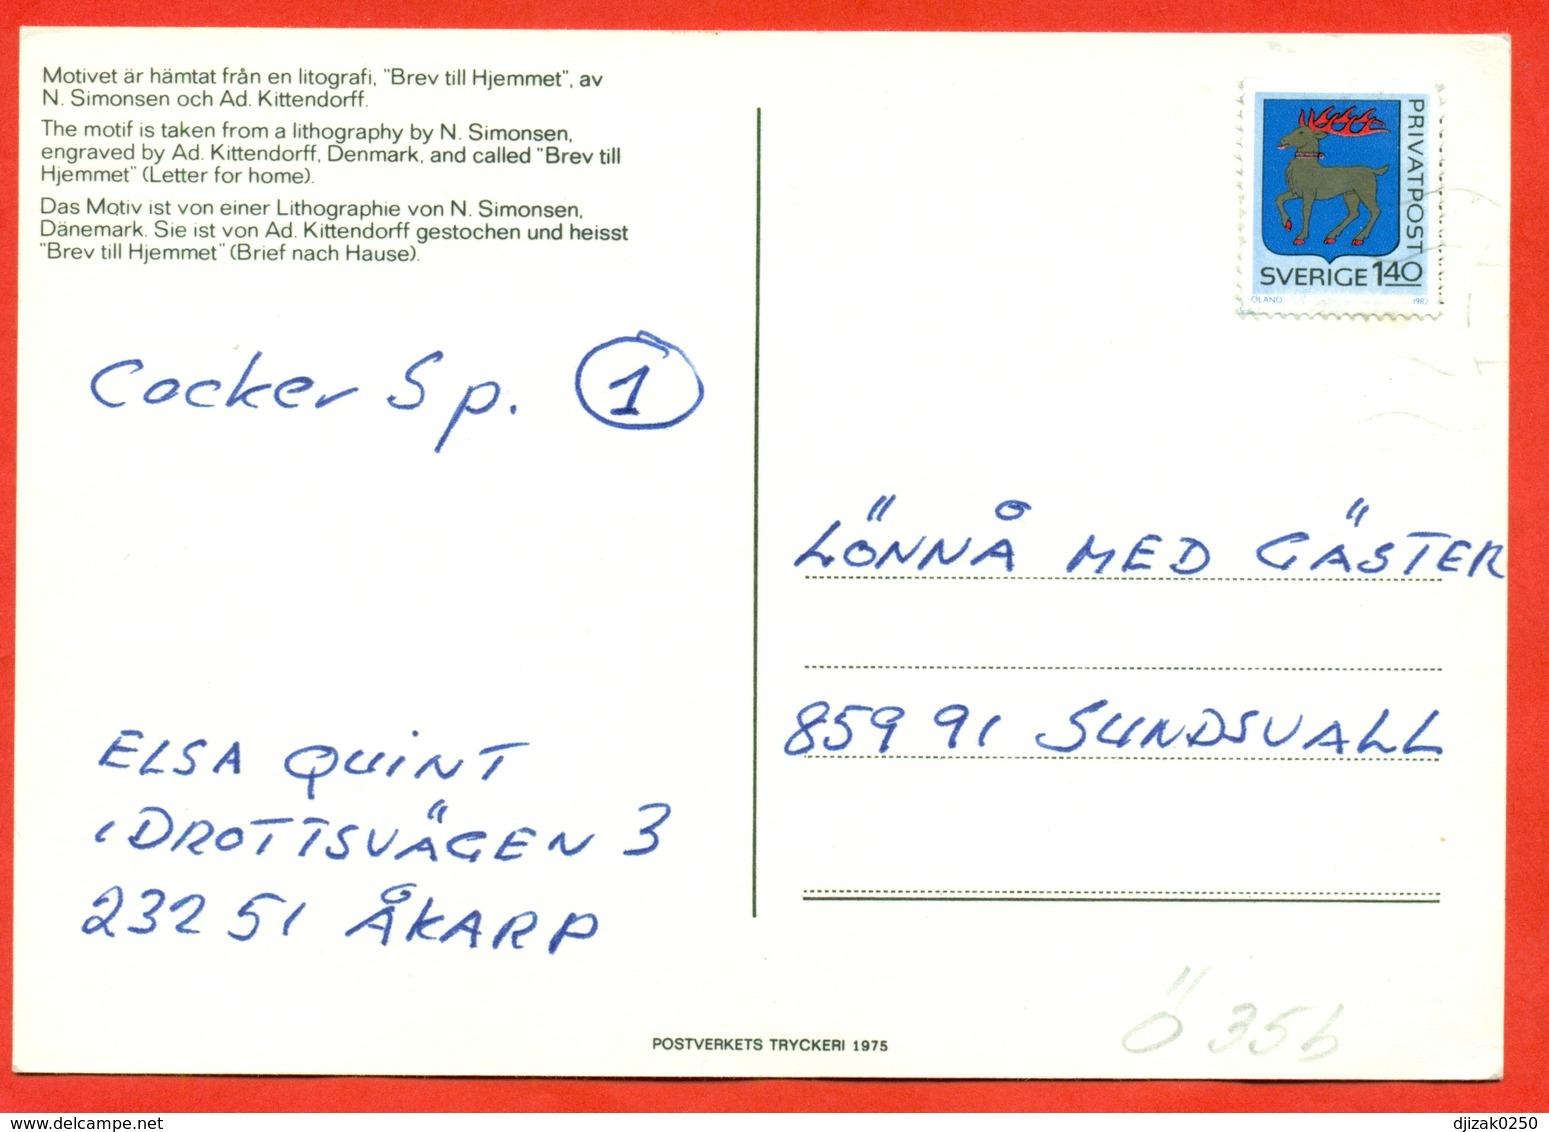 Motivet är hämtat från en litografi, "Brev till Hjemmet", av
N. Simonsen och Ad. Kittendorff.
The motif is taken from a lithography by N. Simonsen,
engraved by Ad. Kittendorff, Denmark, and called "Brev till
Hjemmet" (Letter for home).
Das Motiv ist von einer Lithographie von N. Simonsen,
Dänemark. Sie ist von Ad. Kittendorff gestochen und heisst
"Brev till Hjemmet" (Brief nach Hause).
PRIVATPOST
SVERIGE 140
ÖLAND 1982
Cocker Sp. 1
LÖNNÅ MED GÄSTER
859 91 SUNDSVALL
ELSA QUINT
IDROTTSVÄGEN 3
232 51 ÅKARP
Ö 35b
POSTVERKETS TRYCKERI 1975
delcampe.net
djizak0250